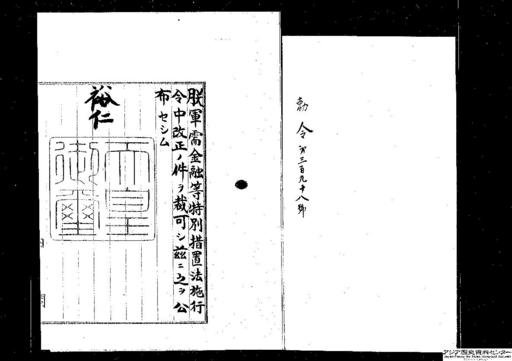 勅令第三百九十八號
朕軍需金融等特別措置法施行
令中改正ノ件ヲ裁可シ茲ニ之ヲ公
布セシム
裕仁
天皇
御璽
アジア歴史資料センター